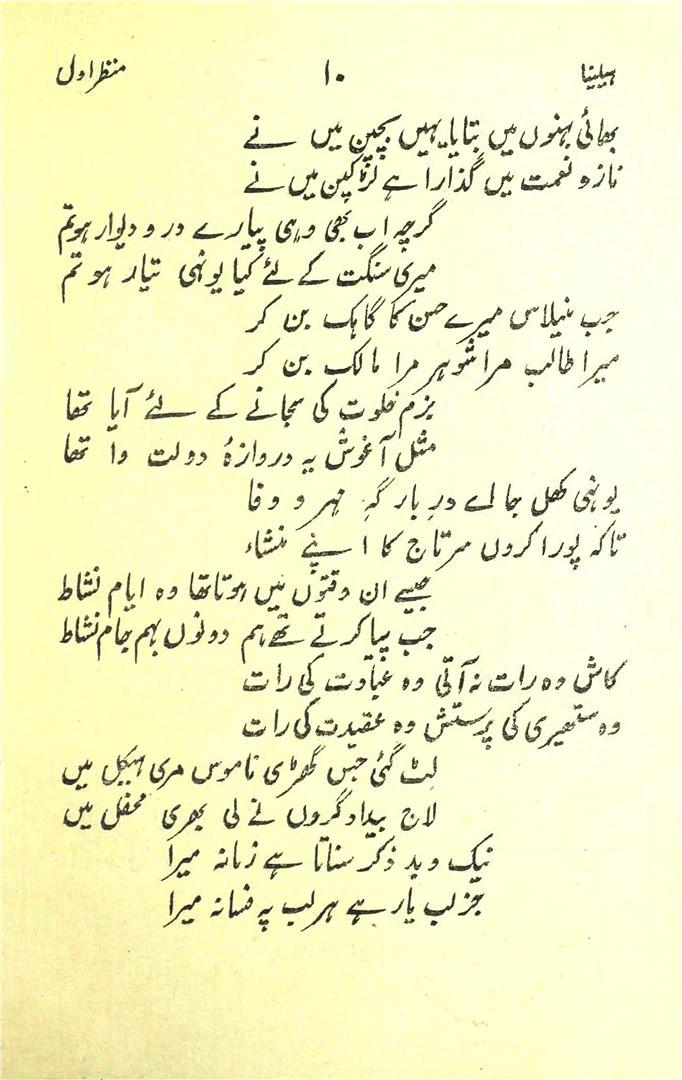 ہیلینا ۱۰ منظر اول
بھائی بہنوں میں بتایا یہیں بچپن میں نے
ناز و نعمت میں گذارا ہے لڑکپن میں نے
گرچہ اب بھی وہی پیارے در و دیوار ہو تم
میری سنگت کے لئے کیا یونہی تیار ہو تم
جب منیلاس میرے حسن کا گاہک بن کر
میرا طالب مرا شوہر مرا مالک بن کر
بزم خلوت کی سجانے کے لئے آیا تھا
مثل آغوش یہ دروازۂ دولت وا تھا
یونہی کھل جا اے درِ بار گہِ مہر و وفا
تاکہ پورا کروں سرتاج کا اپنے منشاء
جیسے ان وقتوں میں ہوتا تھا وہ ایام نشاط
جب پیا کرتے تھے ہم دونوں بہم جام نشاط
کاش وہ رات نہ آتی وہ عبادت کی رات
وہ ستھیری کی پرستش وہ عقیدت کی رات
لٹ گئی جس گھڑی ناموس مری ہیکل میں
لاج بیداد گروں نے لی بھری محفل میں
نیک و بد ذکر سناتا ہے زمانہ میرا
جز لب یار ہے ہر لب پہ فسانہ میرا